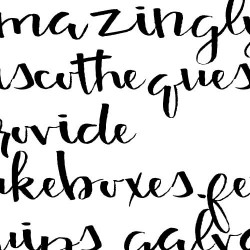 mazingly
iscotheques
rovide
ukeboxes.fe
uips galv